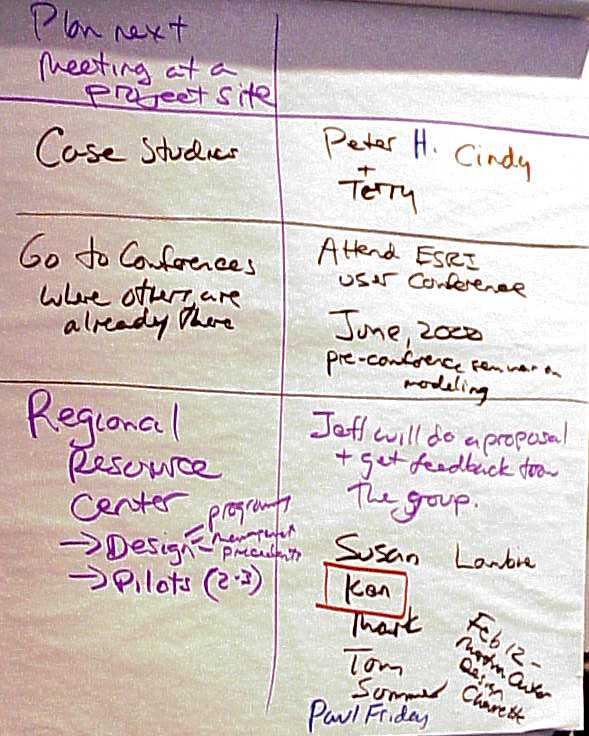 Plan next
meeting at a
project site
Case Studies
Peter H. Cindy
+
Terry
Go to Conferences
where others are
already there
Attend ESRI
user Conference
June, 2000
pre-conference seminar on
modeling
Regional
Resource
Center
→ Design
programs
management
→ Pilots (2-3)
Jeff will do a proposal
+ get feedback from
the group.
Susan
Ken
Mark
Tom
Sommer
Paul Friday
Feb 12 -
Design
Charette